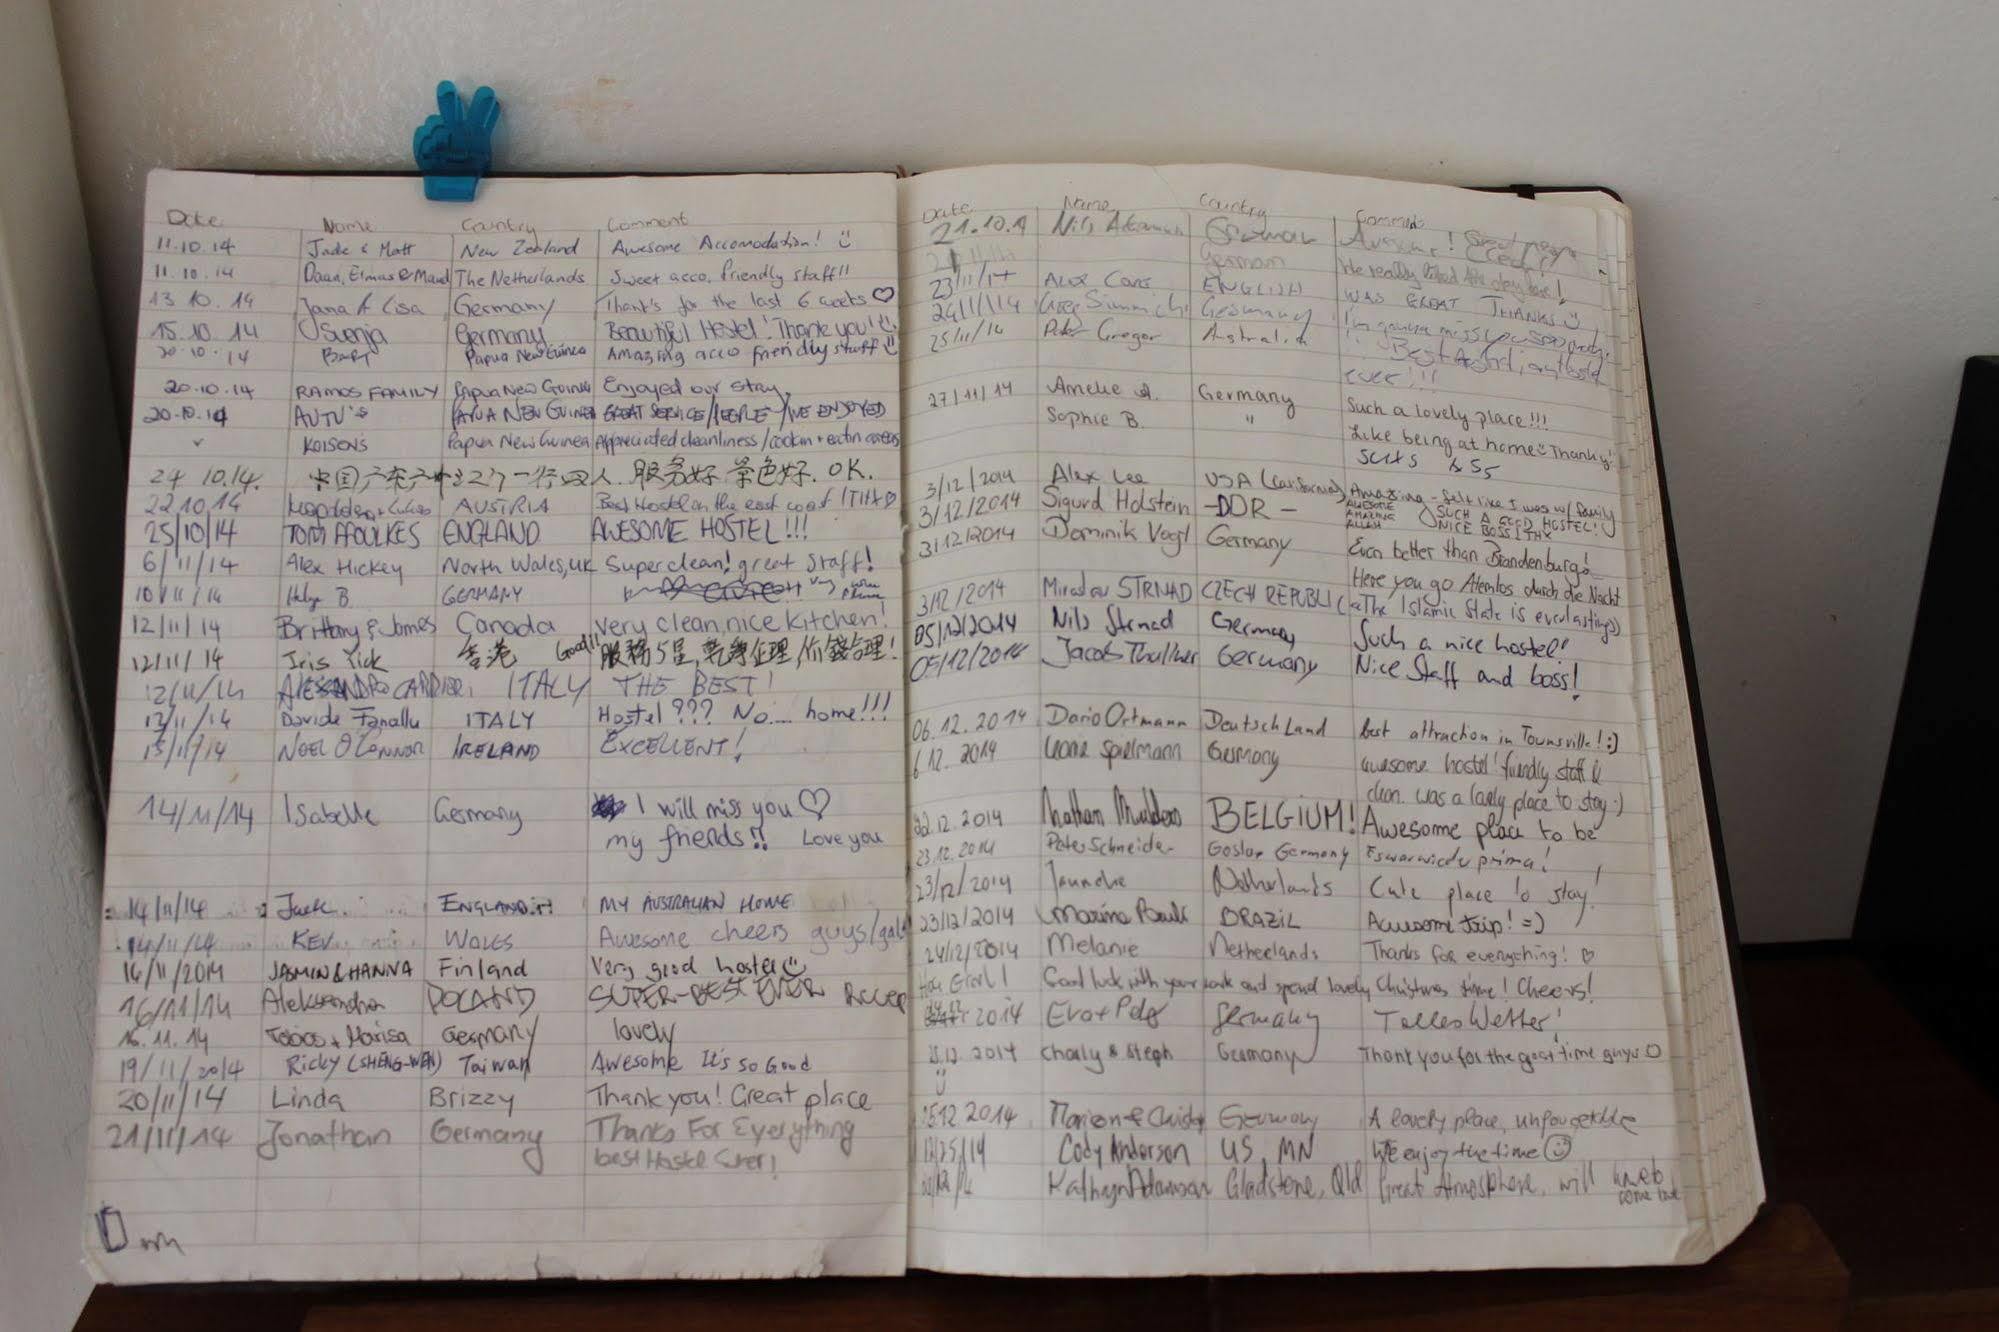 Date Name Country Comment
11.10.14 Jade & Matt New Zealand Awesome Accomodation!
11.10.14 Daan, Elmas & Maud The Netherlands Sweet acco, friendly staff!!
13.10.14 Jana & Lisa Germany Thank's for the last 6 weeks ♡
15.10.14 Svenja Germany Beautiful Hostel! Thank you!
20.10.14 Papua New Guinea Amazing acco friendly staff
20.10.14 RAMOS FAMILY Papua New Guinea Enjoyed our stay
20.10.14 AUTU'S PAPUA NEW GUINEA GREAT SERVICE/PEOPLE/IVE ENJOYED
KOISEN'S Papua New Guinea Appreciated cleanliness/cookin + eatin areas
24 10.14. 中国广东 一行四人. 服务好 景色好. OK.
22.10.14 AUSTRIA Best Hostel on the east coast! THX
25/10/14 TOM FFOULKES ENGLAND AWESOME HOSTEL!!!
6/11/14 Alex Hickey North Wales, UK Super clean! great staff!
10/11/14 Helge B. GERMANY
12/11/14 Brittany & James Canada Very clean, nice kitchen!
12/11/14 Iris Yick 香港 Good!! 服務5星, 乾淨企理, 价錢合理!
12/11/14 ITALY THE BEST!
12/11/14 Davide ITALY Hostel??? No.... home!!!
13/11/14 NOEL O'CONNOR IRELAND EXCELLENT!
14/11/14 Isabelle Germany I will miss you ♡
my friends!! Love you
14/11/14 Jack. ENGLAND MY AUSTRALIAN HOME
14/11/14 KEV WALES Awesome cheers guys/gals
16/11/2014 JASMIN & HANNA Finland Very good hostel
16/11/14 Aleksandra POLAND SUPER-BEST EVER
16.11.14 Tobias & Marisa Germany lovely
19/11/2014 Ricky (SHENG-WEN) Taiwan Awesome It's so Good
20/11/14 Linda Brizzy Thank you! Great place
21/11/14 Jonathan Germany Thanks For Everything
best Hostel Ever!
Date Name Country Comment
21.10.14 Nils German
German We really liked the stay here!
23/11/14 Alex ENGLISH WAS GREAT THANKS
24/11/14 Germany I'm gonna miss you
25/11/14 Peter Gregor Australia Best
ever!!!
27/11/14 Amelie Germany Such a lovely place!!!
Sophie B. " Like being at home Thanky!
3/12/2014 Alex Lee USA (California) Amazing - felt like I was w/ family
3/12/2014 Sigurd Holstein -DDR- AWESOME AMAZING SUCH A GOOD HOSTEL! NICE BOSS! THX
3/12/2014 Dominik Vogl Germany Even better than Brandenburg!
Here you go Atemlos durch die Nacht
3/12/2014 Miroslav STRNAD CZECH REPUBLIC The Islamic State is everlasting
05/12/2014 Nils Germany Such a nice hostel!
05/12/2014 Jacob Germany Nice Staff and boss!
06.12.2014 Dario Ortmann Deutschland Best attraction in Townsville! :)
6.12.2014 Spielmann Germany awesome hostel! friendly staff &
clean. was a lovely place to stay :)
22.12.2014 Nathan Mulders BELGIUM! Awesome place to be
23.12.2014 Peter Schneider Goslar Germany Es war wieder prima!
23/12/2014 Netherlands Cute place to stay!
23/12/2014 Marina BRAZIL Awesome trip! =)
24/12/2014 Melanie Netherlands Thanks for everything! ♡
Good luck with your work and spend lovely Christmas time! Cheers!
2014 Eva + Peter Germany Tolles Wetter!
2014 Charly & Steph Germany Thank you for the great time guys
25.12.2014 Germany A lovely place, unforgettable
12/25/14 Cody Anderson US, MN We enjoy the time
Kathryn Adamson Gladstone, Qld Great Atmosphere, will
come back